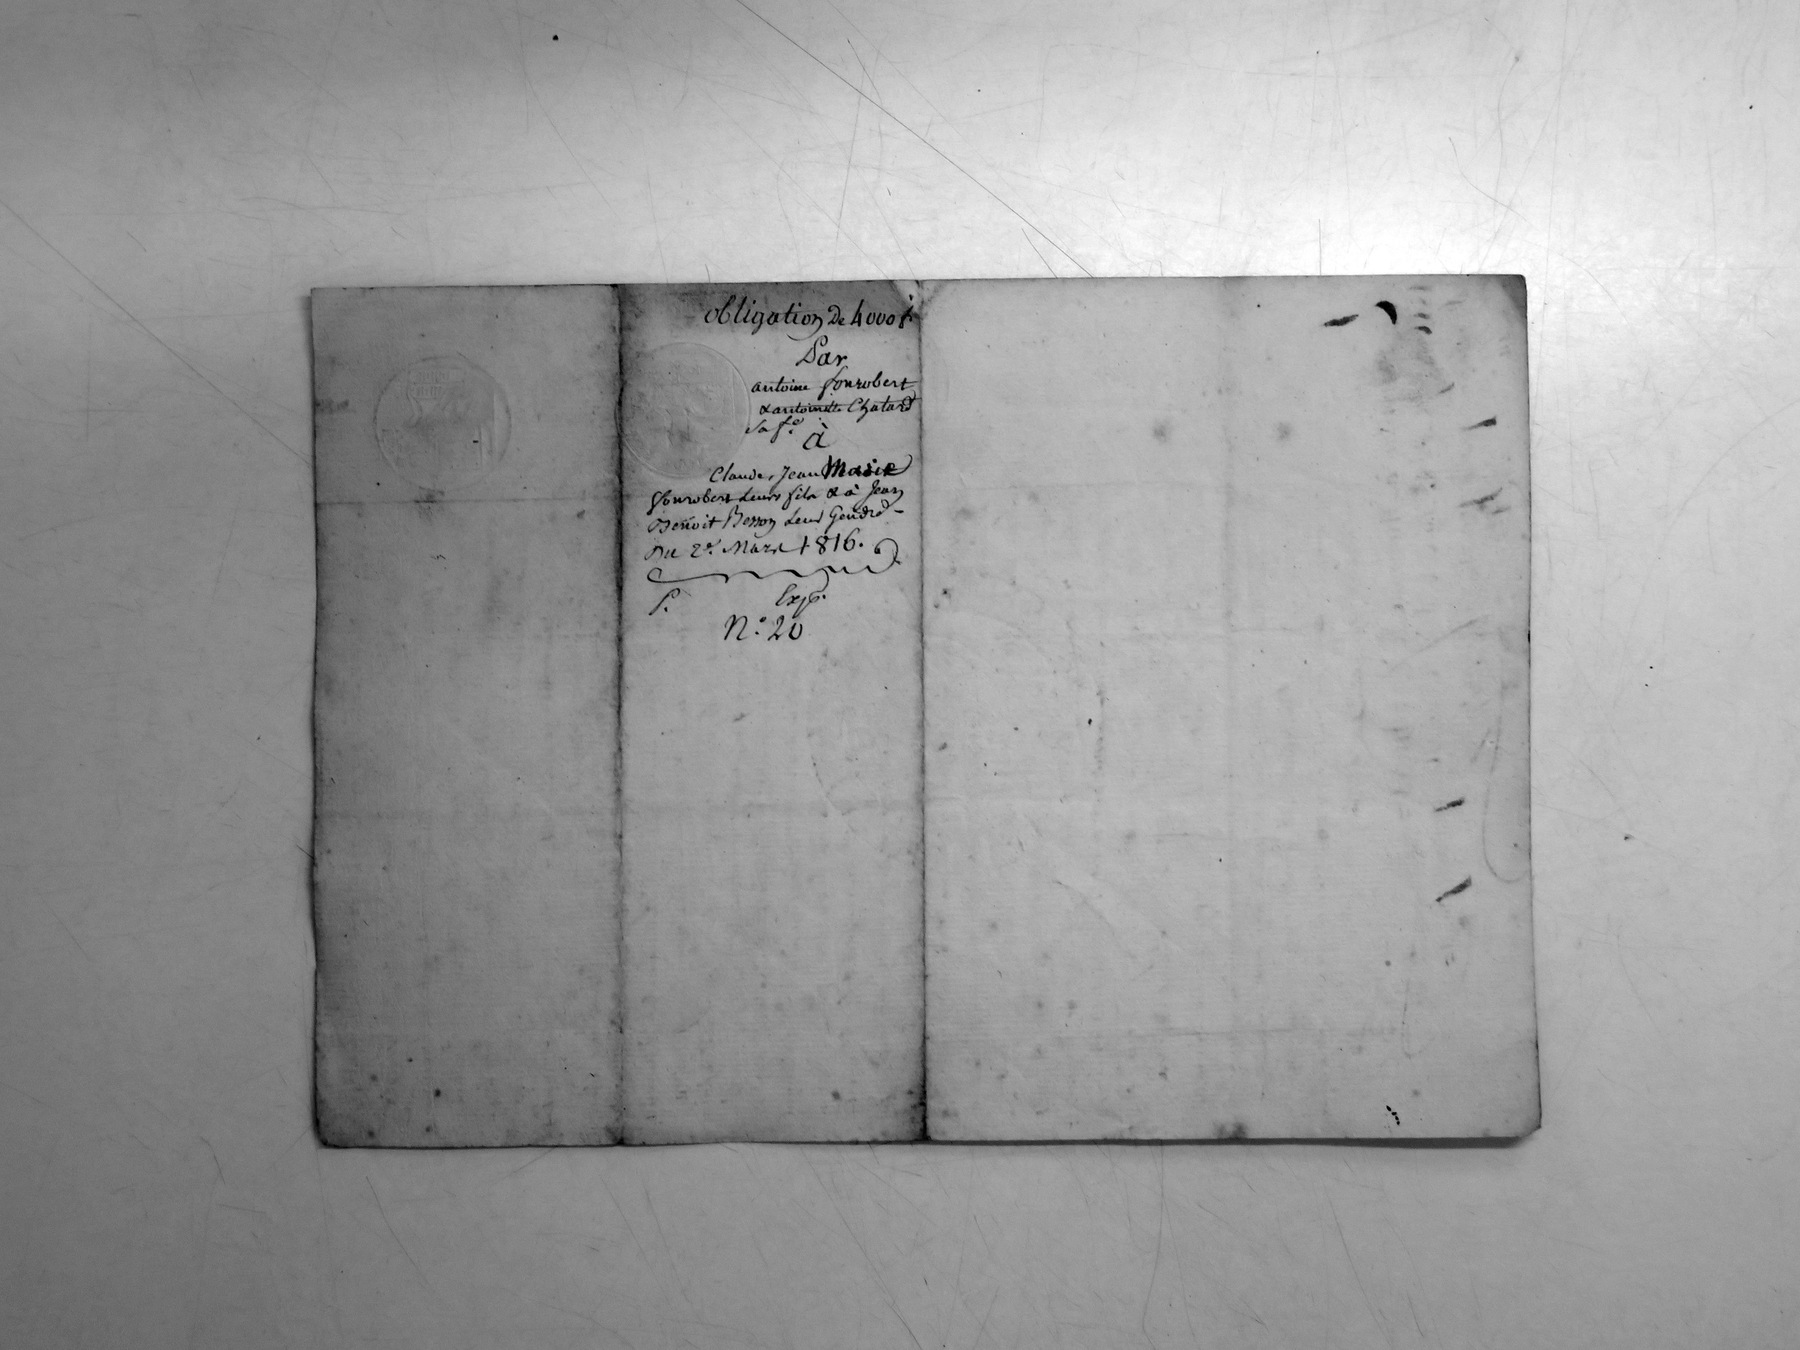 obligation de 4000 f.
Par
antoine fourobert
& antoinette Chatard
sa fe.
à
Claude, Jean Marie
fourobert Leurs fils & à Jean
Benoit Besson Leur Gendre -
Du 2e. Mars 1816.
P. Exp.
N.° 20